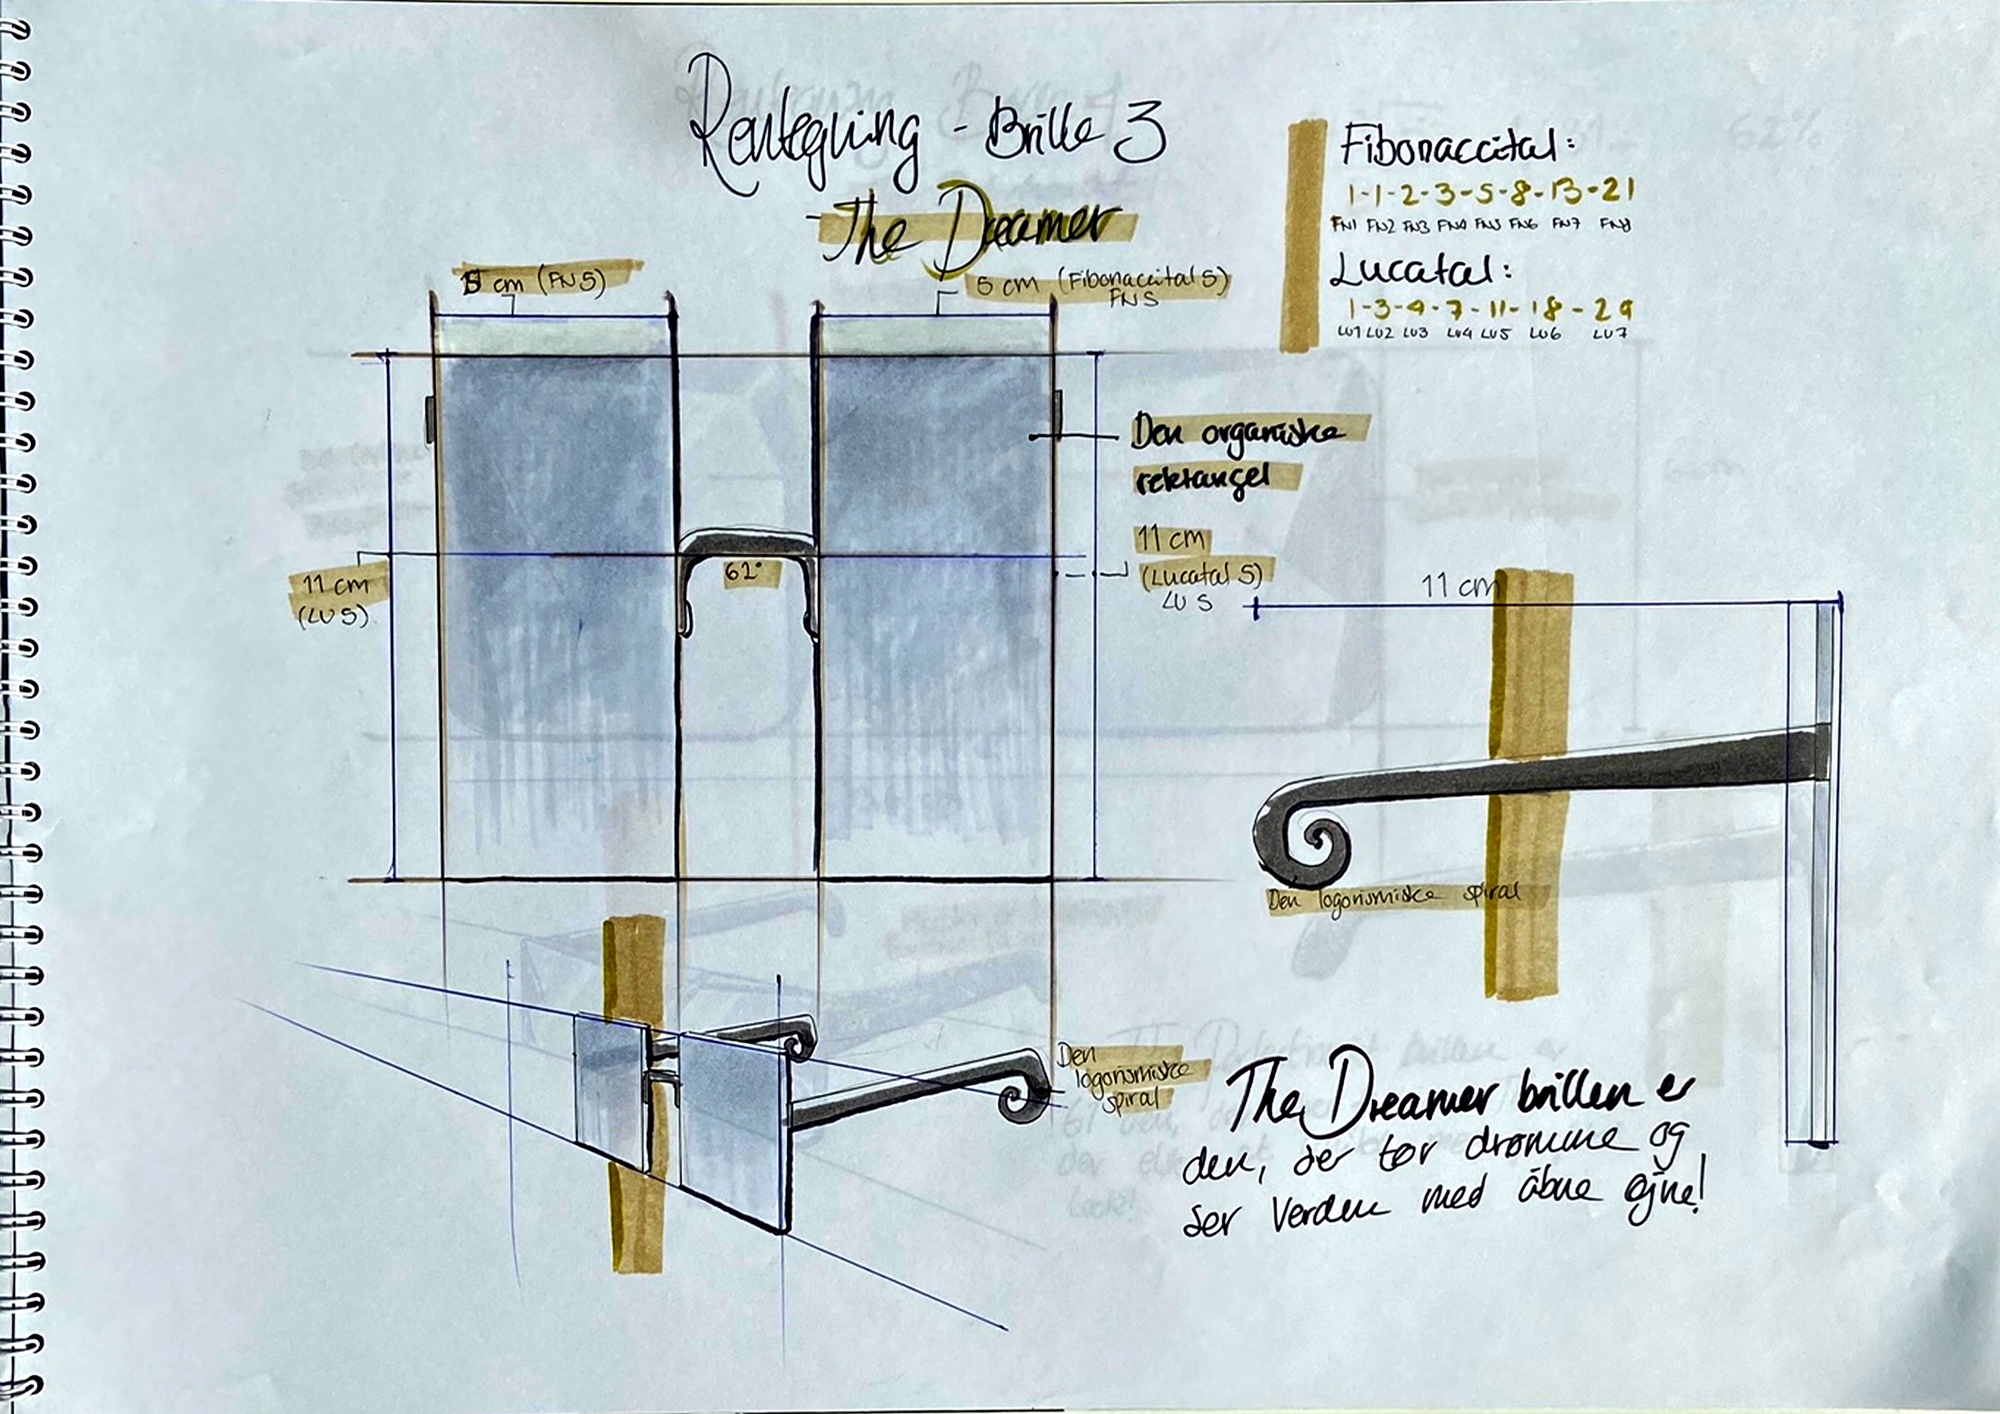 Rentegning - Brille 3
- The Dreamer
Fibonaccital:
1-1-2-3-5-8-13-21
FN1 FN2 FN3 FN4 FN5 FN6 FN7 FN8
Lucatal:
1-3-4-7-11-18-29
LU1 LU2 LU3 LU4 LU5 LU6 LU7
5 cm (FN5)
5 cm (Fibonaccital 5)
FN5
Den organiske
rektangel
11 cm
(Lucatal 5)
LU 5
11 cm
(LU 5)
62°
11 cm
Den logorismiske spiral
Den
logorismiske
spiral
The Dreamer brillen er
den, der tør drømme og
ser verden med åbne øjne!
62%